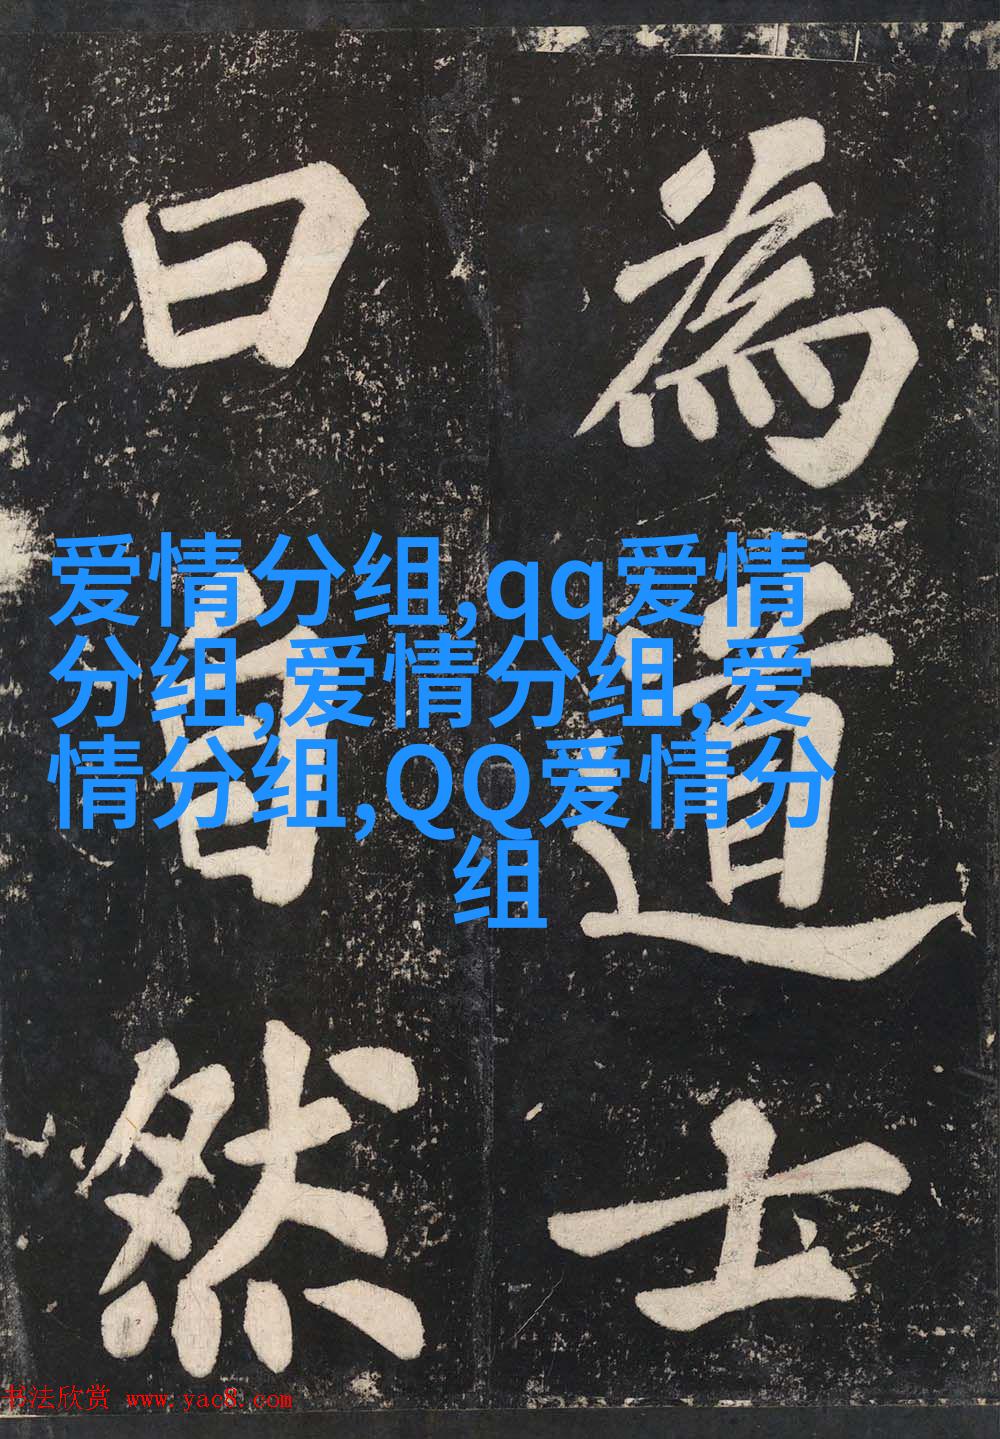 為道士
曰自然
爱情分组,qq爱情
分组,爱情分组,爱
情分组,QQ爱情分
组
书法欣赏 www.yac8.com